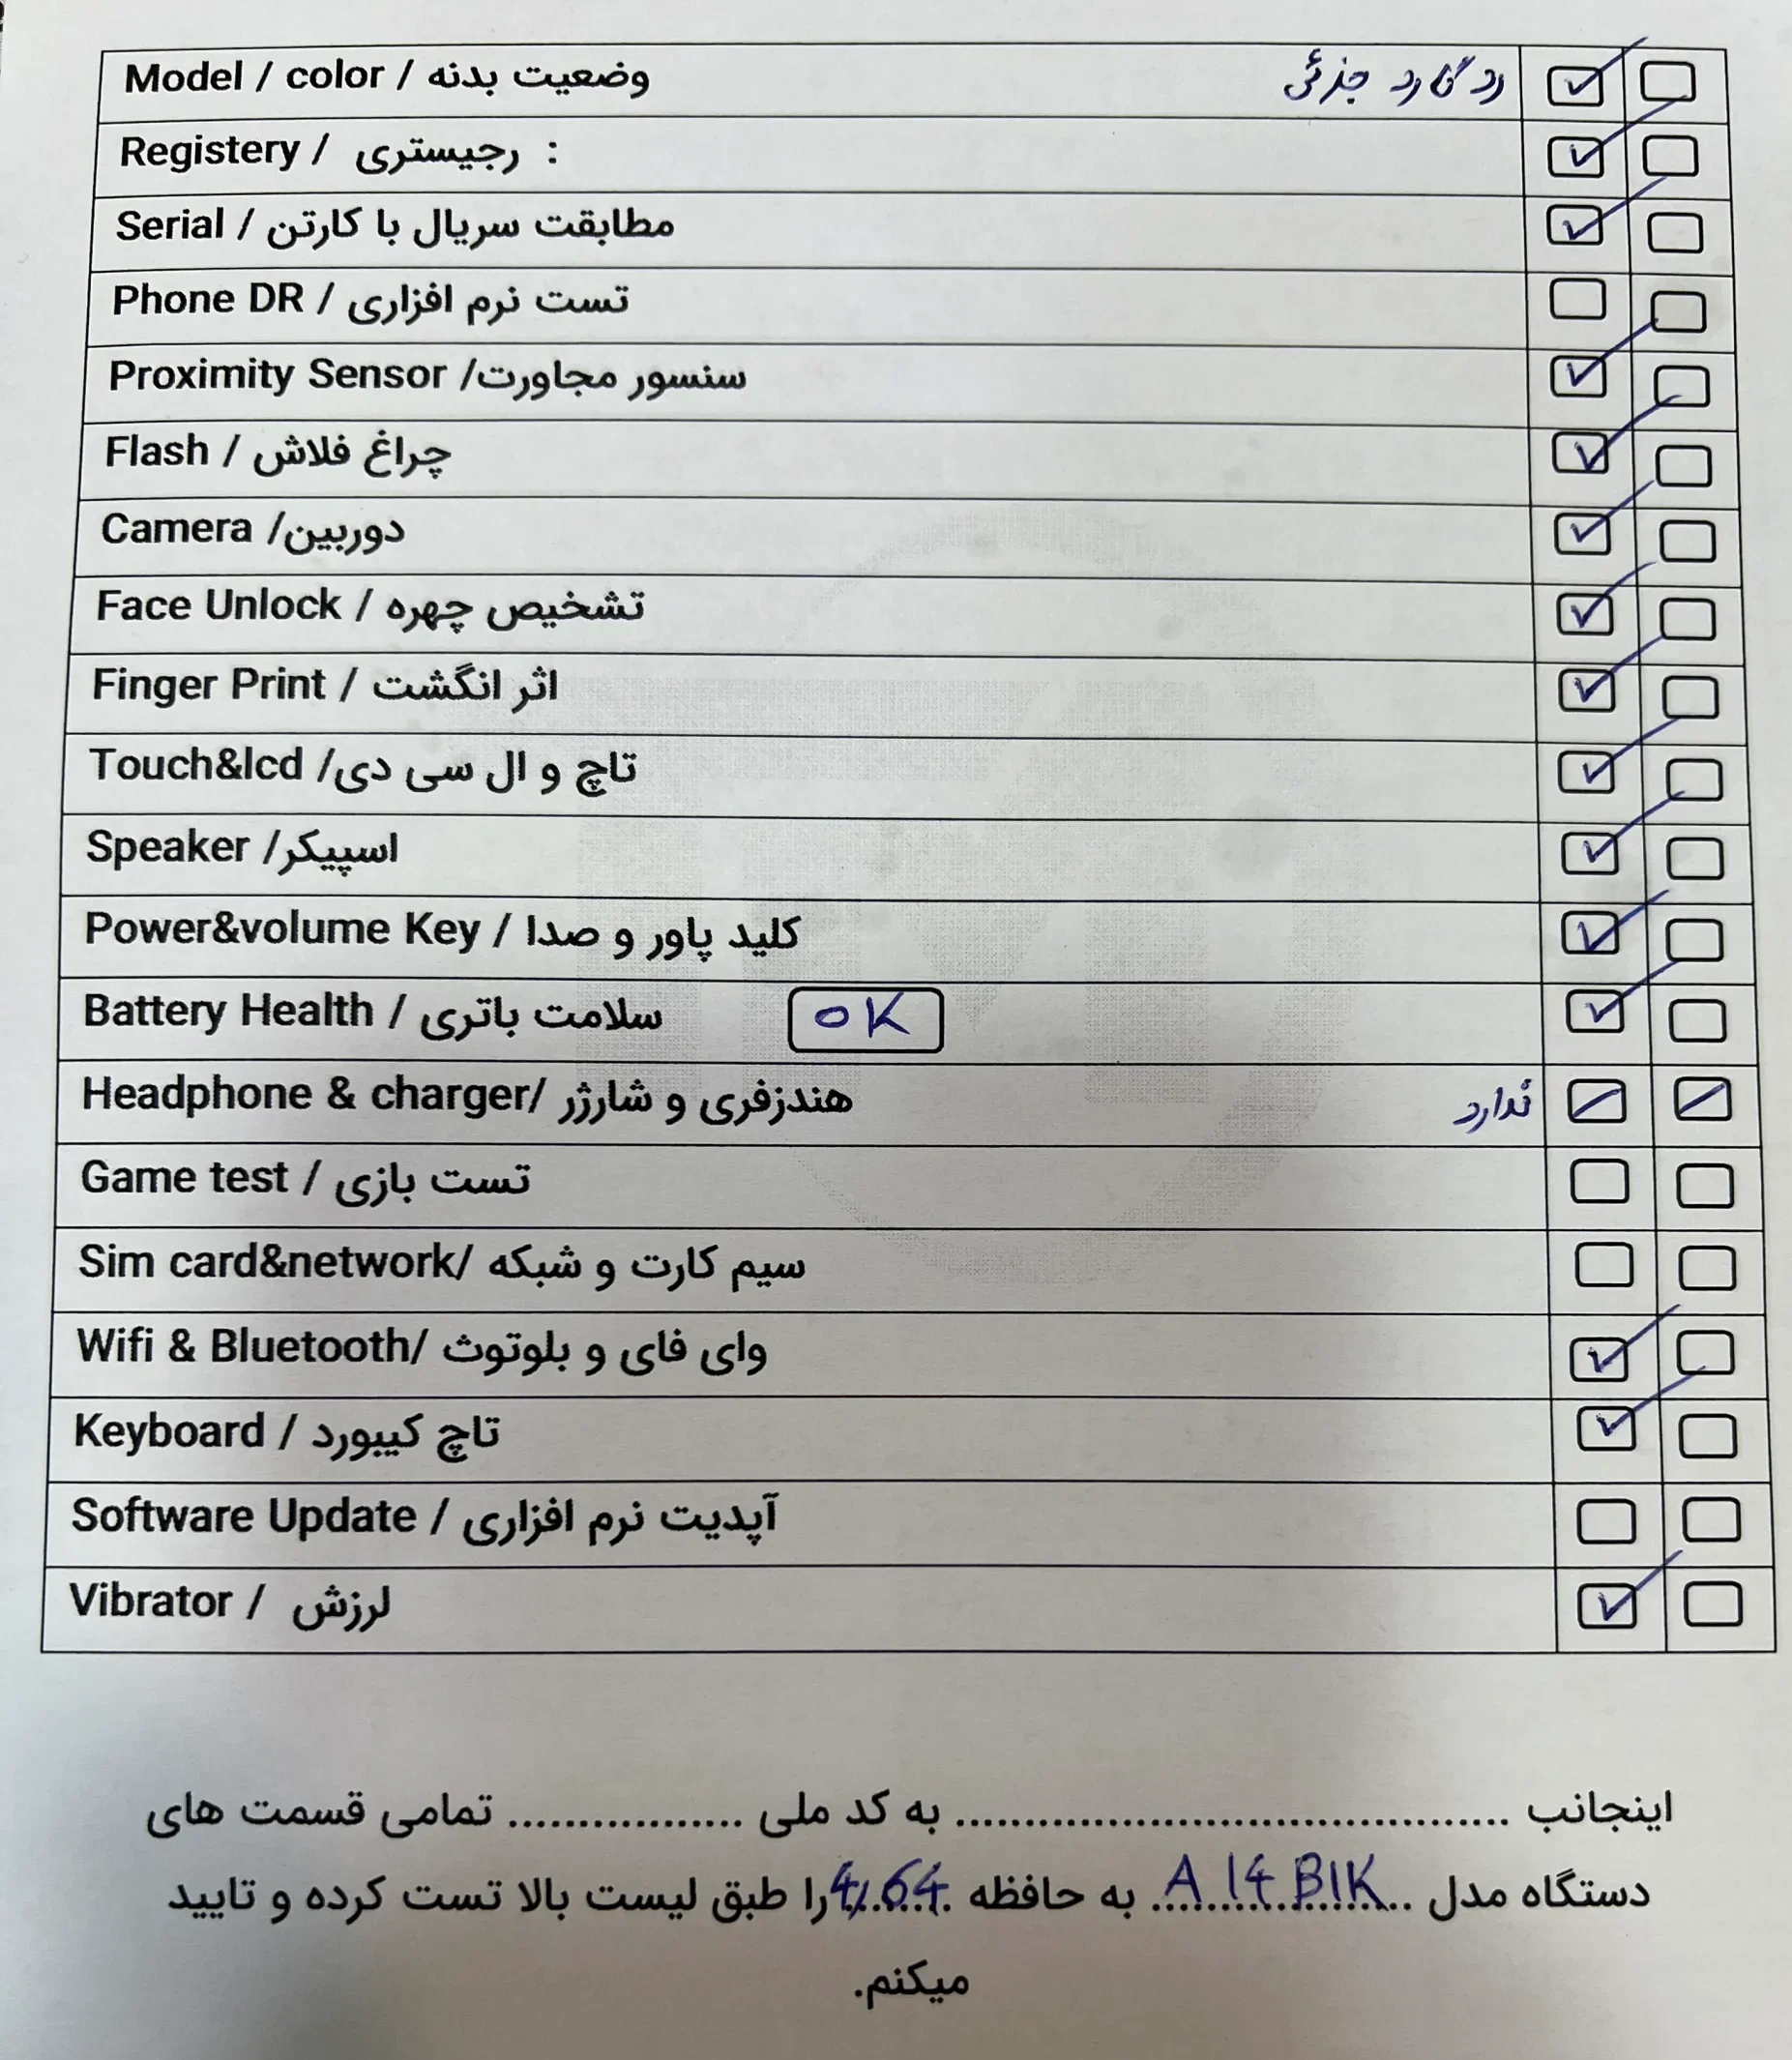 Model / color / وضعیت بدنه رد گارد جزئی
Registery / رجیستری :
Serial / مطابقت سریال با کارتن
Phone DR / تست نرم افزاری
Proximity Sensor /سنسور مجاورت
Flash / چراغ فلاش
Camera /دوربین
Face Unlock / تشخیص چهره
Finger Print / اثر انگشت
Touch&lcd /تاچ و ال سی دی
Speaker /اسپیکر
Power&volume Key / کلید پاور و صدا
Battery Health / سلامت باتری OK
Headphone & charger/ هندزفری و شارژر ندارد
Game test / تست بازی
Sim card&network/ سیم کارت و شبکه
Wifi & Bluetooth/ وای فای و بلوتوث
Keyboard / تاچ کیبورد
Software Update / آپدیت نرم افزاری
Vibrator / لرزش
اینجانب ........................................ به کد ملی ................. تمامی قسمت های
دستگاه مدل A14 BlK به حافظه 4/64 را طبق لیست بالا تست کرده و تایید
میکنم.